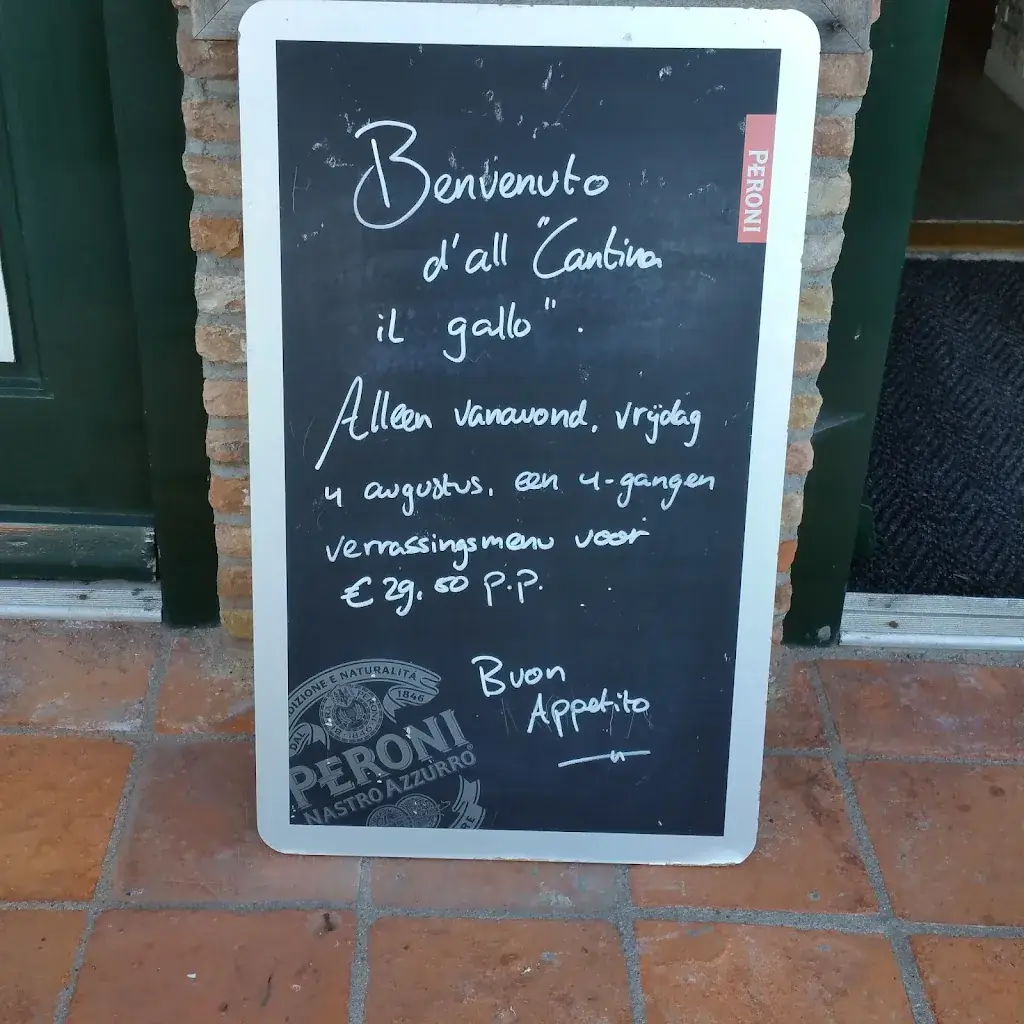 PERONI
Benvenuto
d'all "Cantina
il gallo".
Alleen vanavond, vrijdag
4 augustus, een 4-gangen
verrassingsmenu voor
€ 29,50 p.p.
Buon
Appetito
NATURALITÀ
1846
DAL
PERONI
NASTRO AZZURRO